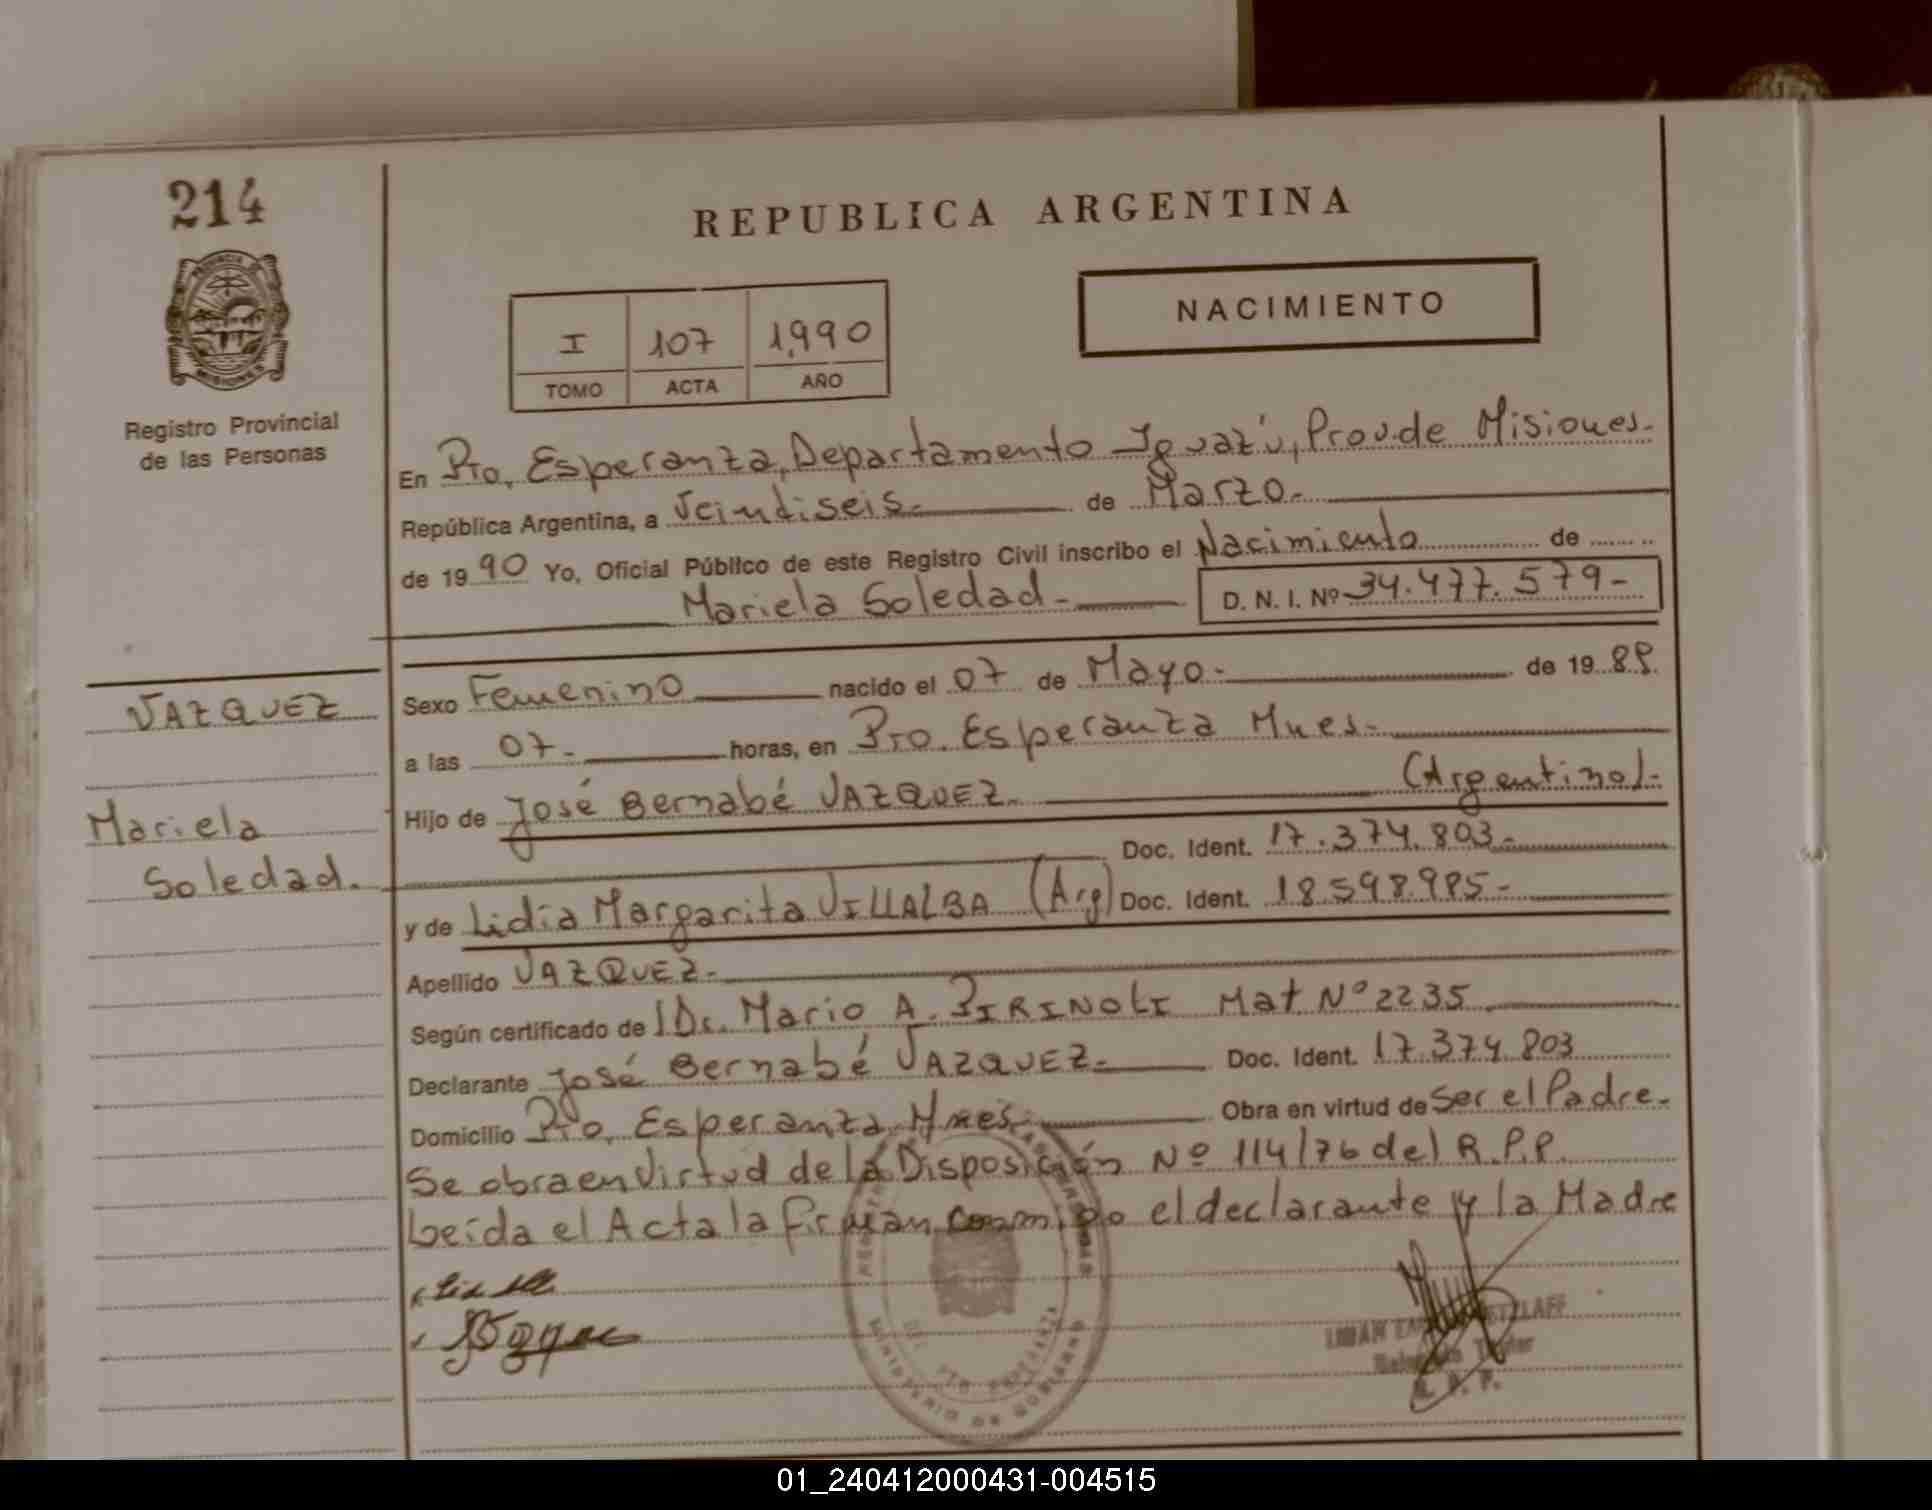 214
PROVINCIA DE
MISIONES
Registro Provincial
de las Personas
REPUBLICA ARGENTINA
NACIMIENTO
I 107 1,990
TOMO ACTA AÑO
En Pto, Esperanza, Departamento Iguazú, Prov.de Misiones.
República Argentina, a Veintiseis. de Marzo.
de 19 90 Yo, Oficial Público de este Registro Civil inscribo el Nacimiento de
Mariela Soledad - D. N. I. Nº 34.477.579-
VAZQUEZ
Mariela
Soledad.
Sexo Femenino nacido el 07 de Mayo. de 19 89.
a las 07- horas, en Pto. Esperanza Mnes.
Hijo de José Bernabé VAZQUEZ. (Argentino).
Doc. Ident. 17.374.803-
y de Lidia Margarita VILLALBA (Arg) Doc. Ident. 18.598.985-
Apellido VAZQUEZ.
Según certificado de Dr. Mario A. PIRINOLI Mat Nº 2235
Declarante José Bernabé VAZQUEZ. Doc. Ident. 17.374.803
Domicilio Pto, Esperanza, Mnes. Obra en virtud de Ser el Padre.
Se obra en Virtud de la Disposición Nº 114/76 del R.P.P.
Leída el Acta la firman conmigo el declarante y la Madre
MINISTERIO DE GOBIERNO
R. P. P.
01_240412000431-004515